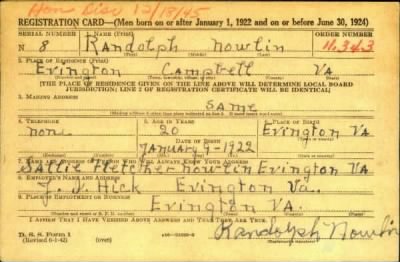 Hon Disc 12/1/45
REGISTRATION CARD—(Men born on or after January 1, 1922 and on or before June 30, 1924)
SERIAL NUMBER 1. NAME (Print) ORDER NUMBER
N 8 Randolph Nowlin 11,343
(First) (Middle) (Last)
2. PLACE OF RESIDENCE (Print)
Evington Campbell VA
[THE PLACE OF RESIDENCE GIVEN ON THE LINE ABOVE WILL DETERMINE LOCAL BOARD
JURISDICTION; LINE 2 OF REGISTRATION CERTIFICATE WILL BE IDENTICAL]
3. MAILING ADDRESS
SAME
4. TELEPHONE 5. AGE IN YEARS 6. PLACE OF BIRTH
none 20 Evington VA
DATE OF BIRTH
January 1922
7. NAME AND ADDRESS OF PERSON WHO WILL ALWAYS KNOW YOUR ADDRESS
Sallie Fletcher Nowlin Evington VA
8. EMPLOYER'S NAME AND ADDRESS
J. J. Hick Evington Va.
9. PLACE OF EMPLOYMENT OR BUSINESS
Evington VA.
I AFFIRM THAT I HAVE VERIFIED ABOVE ANSWERS AND THAT THEY ARE TRUE.
D. S. S. Form 1
(Revised 6-1-42) (over)
Randolph Nowlin